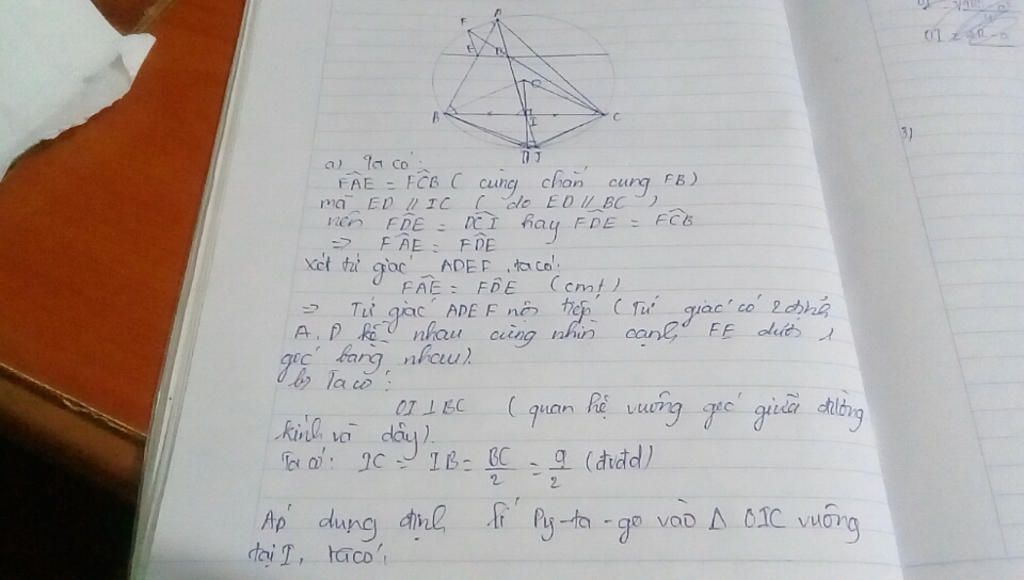 F A
E D
O
B I C
H J
a) Ta có:
FAE = FCB ( cùng chắn cung FB)
mà ED // IC ( do ED // BC )
nên FDE = DCI hay FDE = FCB
=> FAE = FDE
Xét tứ giác ADEF, ta có:
FAE = FDE (cmt)
=> Tứ giác ADEF nội tiếp (Tứ giác có 2 đỉnh
A, D kề nhau cùng nhìn cạnh FE dưới 1
góc bằng nhau).
b) Ta có:
OI ⊥ BC ( quan hệ vuông góc giữa đường
kính và dây).
Ta có: IC = IB = BC/2 = a/2 (đvđd)
Áp dụng định lí Py-ta-go vào Δ OIC vuông
tại I, ta có:
3)